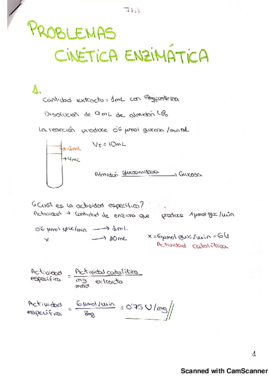 PROBLEMAS
CINÉTICA ENZIMÁTICA
1.
Cantidad extracto = 1mL con
Disolución de 9mL de almidón
La reacción produce 0'6 μmol glucosa/mL·min
VT = 10mL
Almidón glucoamilasa → Glucosa
¿Cuál es la actividad específica?
Actividad → Cantidad de enzima que produce 1μmol glc/min
0'6 μmol glc/min → 1mL
x → 10mL
x = 6μmol glc/min = 6U
Actividad catalítica
Actividad específica = Actividad catalítica / mg extracto
Actividad específica = 6μmol/min / 8mg = 0'75 U/mg
4
Scanned with CamScanner